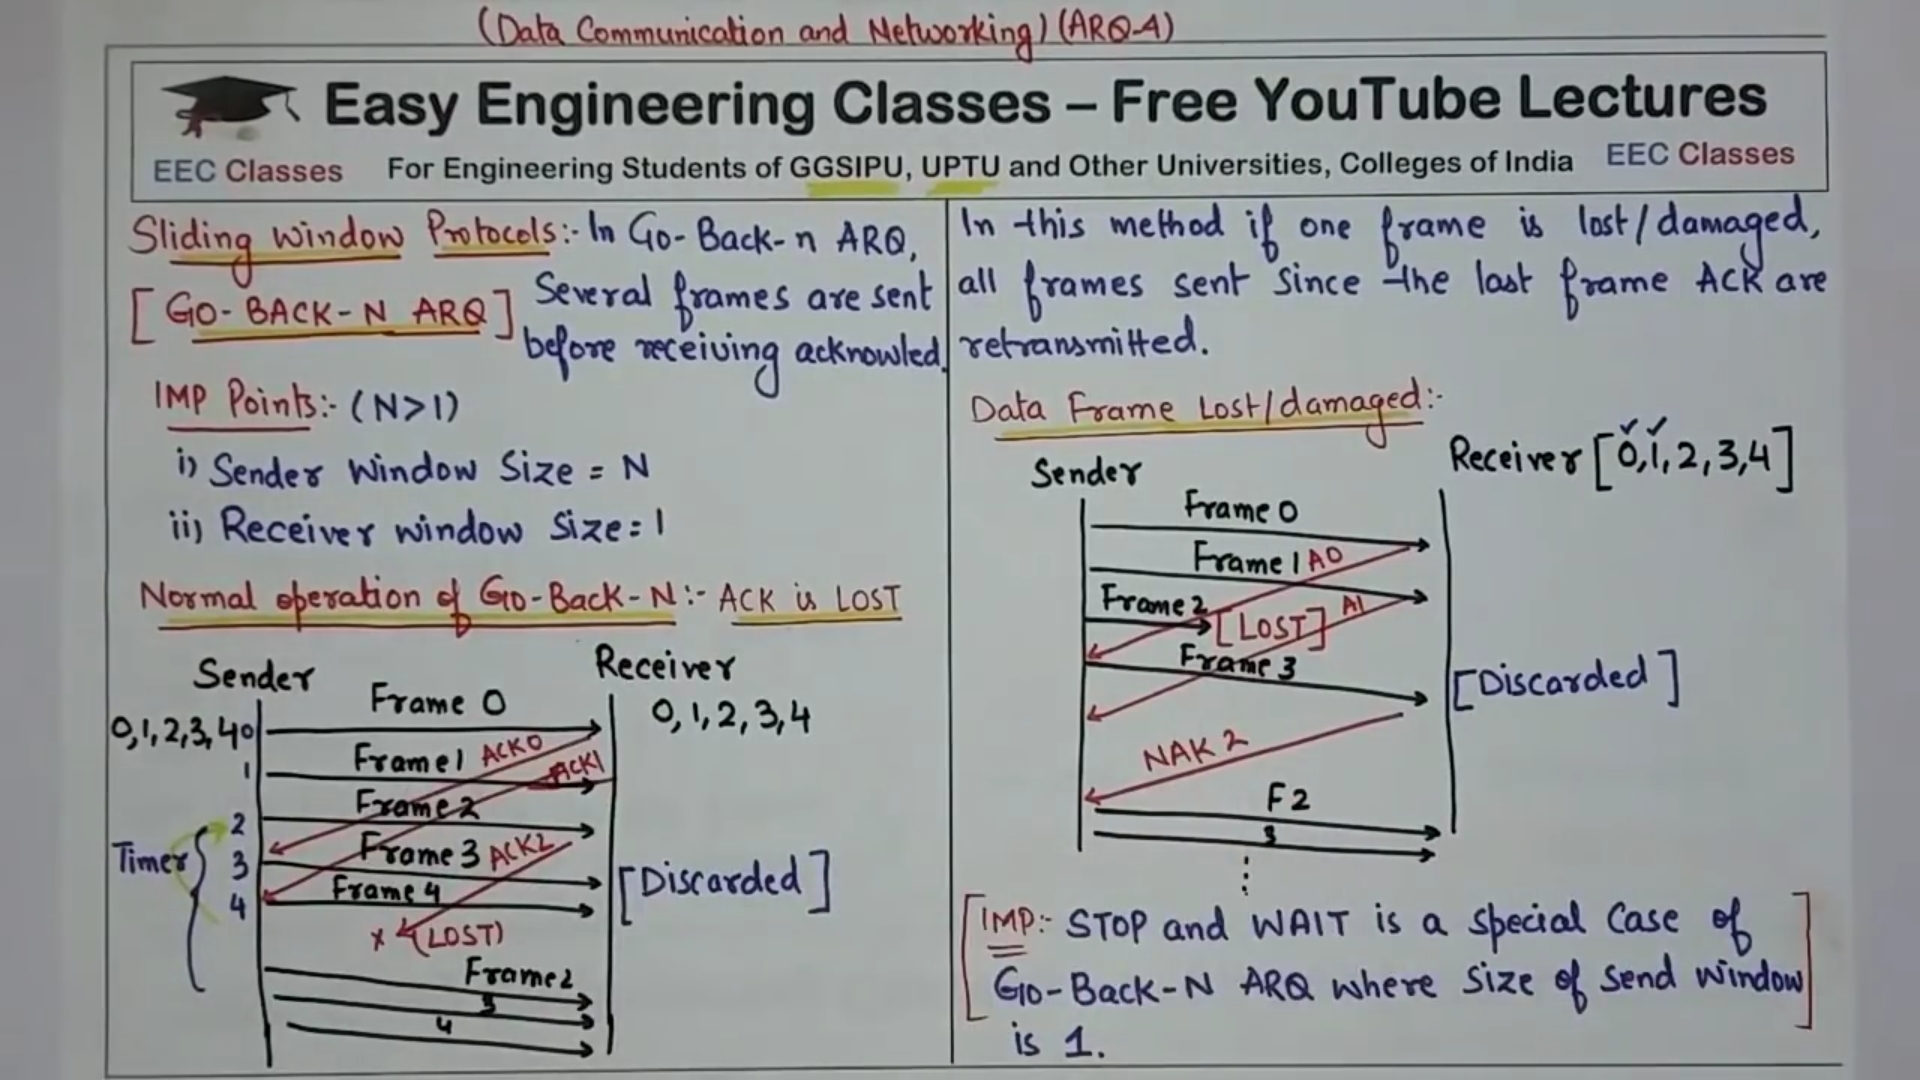 (Data Communication and Networking) (ARQ-4)
Easy Engineering Classes – Free YouTube Lectures
EEC Classes For Engineering Students of GGSIPU, UPTU and Other Universities, Colleges of India EEC Classes
Sliding Window Protocols:- In Go-Back-n ARQ,
[GO-BACK-N ARQ] Several frames are sent
before receiving acknowled.
IMP Points:- (N>1)
i) Sender Window Size = N
ii) Receiver window Size = 1
Normal operation of Go-Back-N:- ACK is LOST
Sender Receiver
0,1,2,3,4 0 Frame 0 0,1,2,3,4
1 Frame 1 ACK0 ACK1
2 Frame 2
Timer 3 Frame 3 ACK2 [Discarded]
4 Frame 4
x (LOST)
Frame 2
3
4
In this method if one frame is lost/damaged,
all frames sent since the last frame ACK are
retransmitted.
Data Frame Lost/damaged:-
Sender Receiver [0,1,2,3,4]
Frame 0
Frame 1 A0
Frame 2 [LOST] A1
Frame 3 [Discarded]
NAK 2
F2
3
[IMP:- STOP and WAIT is a Special Case of
Go-Back-N ARQ where Size of Send Window
is 1.]